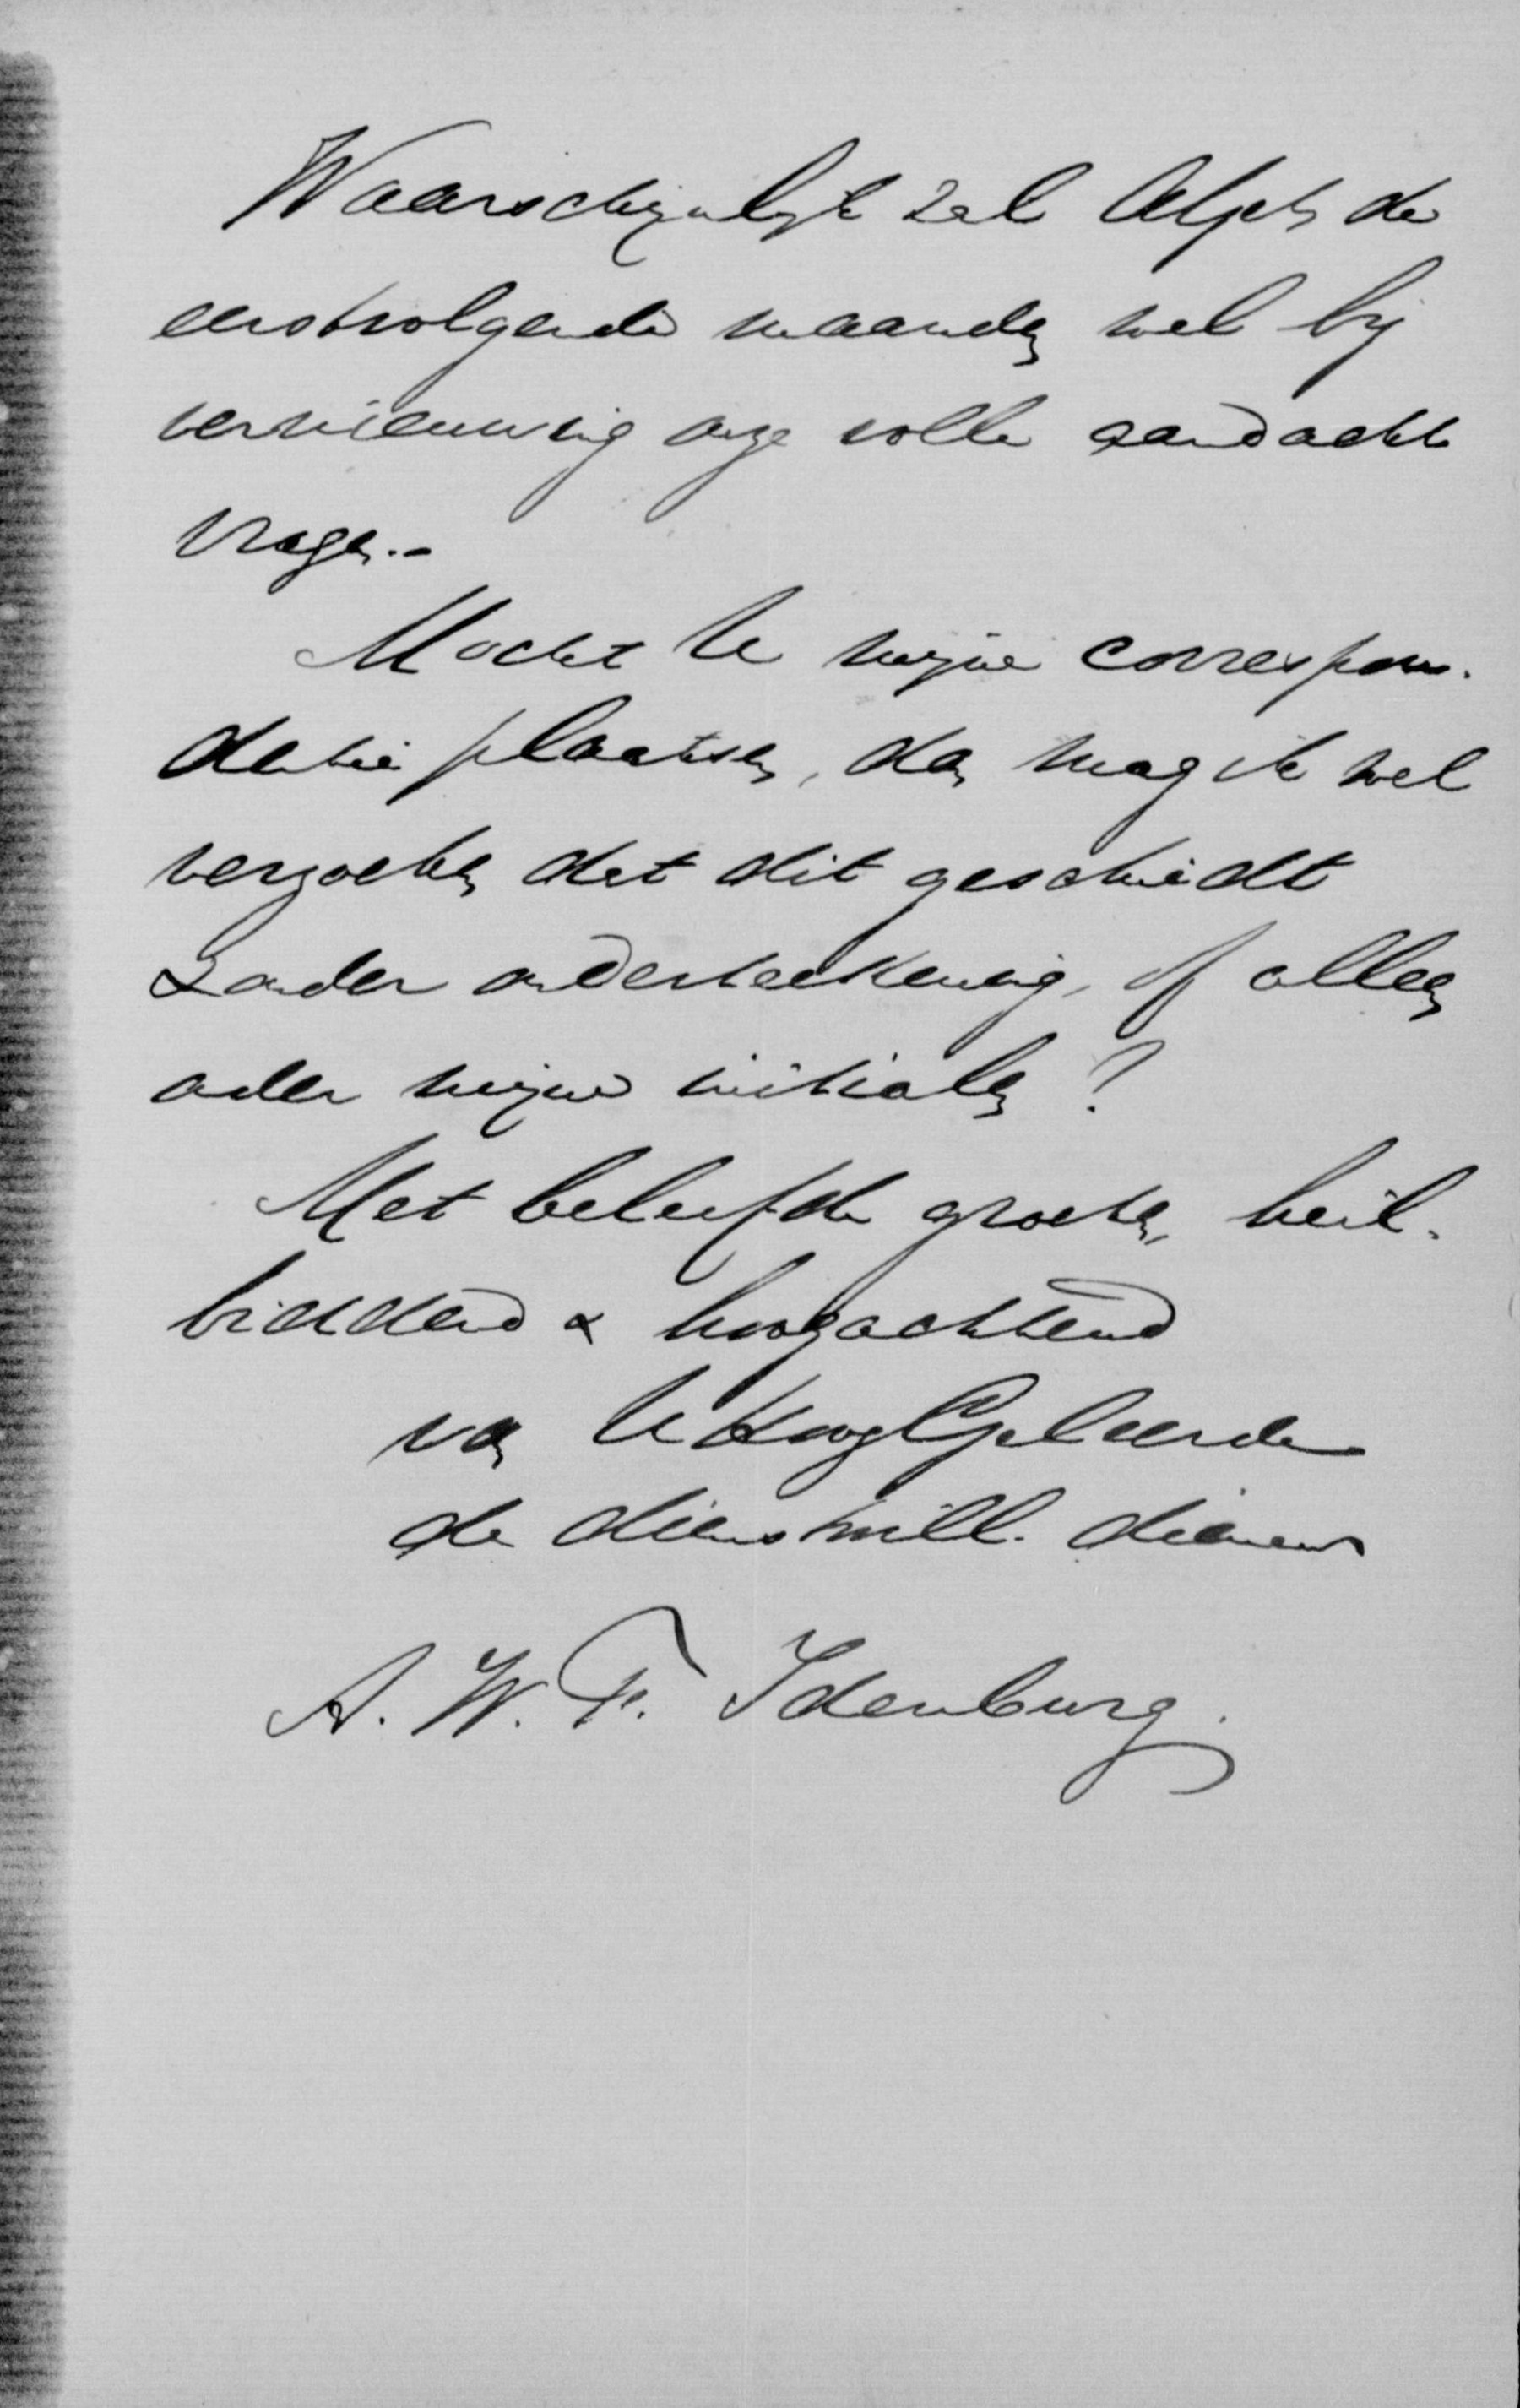 Waarschijnlijk zal Atjeh de
eerstvolgende maanden wel bij
vernieuwing onze volle aandacht
vragen.-
Mocht U mijne correspon-
dentie plaatsen, dan mag ik wel
verzoeken dat dit geschiedt
zonder onderteekening, of alleen
onder mijne initialen?
Met beleefde groeten, heil-
biddend & hoogachtend
van UHoogGeleerde
de dienstwill. dienaar
A. W. F. Idenburg.